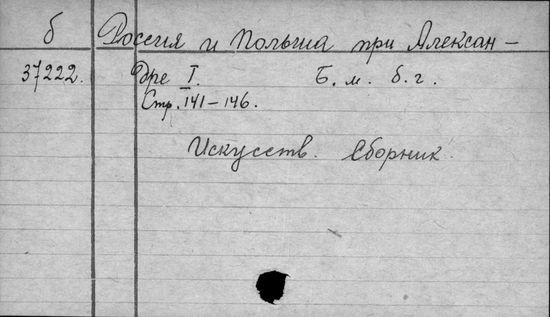 б Россия и Польша при Алексан-
37222. дре I. Б. м. б. г.
Стр. 141-146.
Искусств. Сборник.